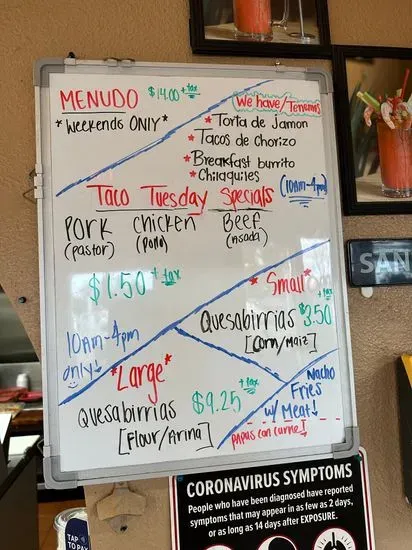 MENUDO $14.00 + tax
*Weekends ONLY*
We have/Tenemos
* Torta de Jamon
* Tacos de Chorizo
* Breakfast burrito
* Chilaquiles
(10am-4pm)
Taco Tuesday Specials
Pork chicken Beef
(pastor) (pollo) (Asada)
$1.50 + tax
10am-4pm
only!
*Small*
Quesabirrias $3.50 + tax
[Corn/Maiz]
*Large*
Quesabirrias $9.25 + tax
[Flour/Arina]
Nacho
Fries
w/ Meat!
Papas con carne!
SAN
CORONAVIRUS SYMPTOMS
People who have been diagnosed have reported
symptoms that may appear in as few as 2 days,
or as long as 14 days after EXPOSURE.
TAP
TO PAY